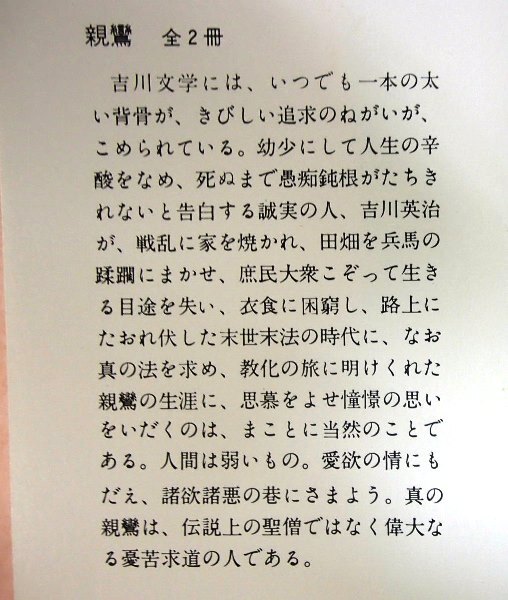 親鸞 全2冊
吉川文学には、いつでも一本の太
い背骨が、きびしい追求のねがいが、
こめられている。幼少にして人生の辛
酸をなめ、死ぬまで愚痴鈍根がたちき
れないと告白する誠実の人、吉川英治
が、戦乱に家を焼かれ、田畑を兵馬の
蹂躙にまかせ、庶民大衆こぞって生き
る目途を失い、衣食に困窮し、路上に
たおれ伏した末世末法の時代に、なお
真の法を求め、教化の旅に明けくれた
親鸞の生涯に、思慕をよせ憧憬の思い
をいだくのは、まことに当然のことで
ある。人間は弱いもの。愛欲の情にも
だえ、諸欲諸悪の巷にさまよう。真の
親鸞は、伝説上の聖僧ではなく偉大な
る憂苦求道の人である。